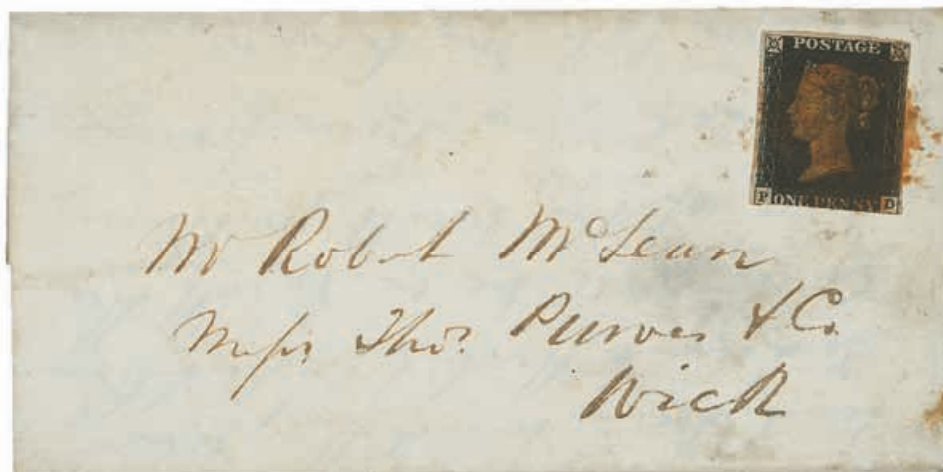 POSTAGE
F D
ONE PENNY
Mr Robert McLean
Messrs Thos. Purves & Co.
Wick